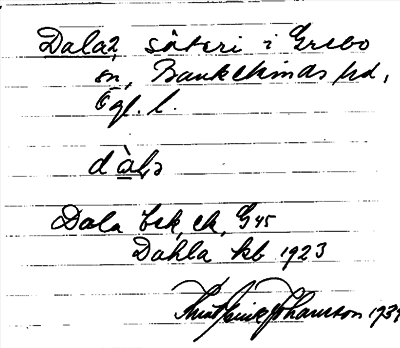 Dala2, säteri i Grebo
sn, Bankekinds hd,
Ögl. l.
dàla
Dala bsk, ek, G45
Dahla kb 1923
Johansson 1934